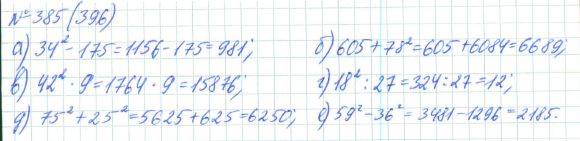 № 385 (396)
а) 34² - 175 = 1156 - 175 = 981; б) 605 + 78² = 605 + 6084 = 6689;
в) 42² · 9 = 1764 · 9 = 15876; г) 18² : 27 = 324 : 27 = 12;
д) 75² + 25² = 5625 + 625 = 6250; е) 59² - 36² = 3481 - 1296 = 2185.